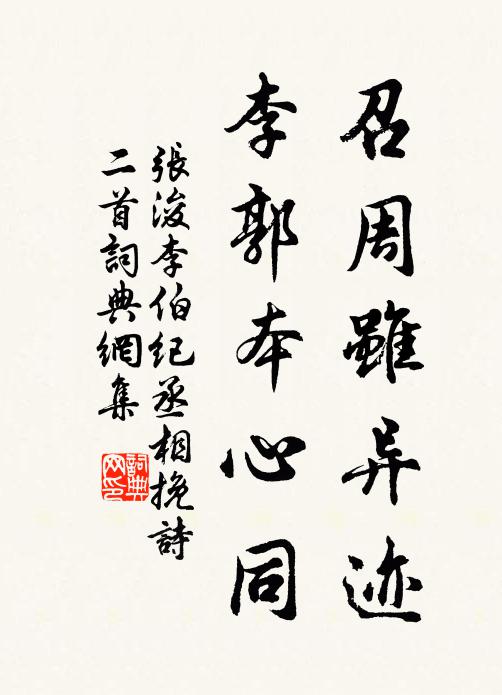 召周雖异迹
李郭本心同
張浚李伯纪丞相挽詩
二首詞典網集
詞典
网印